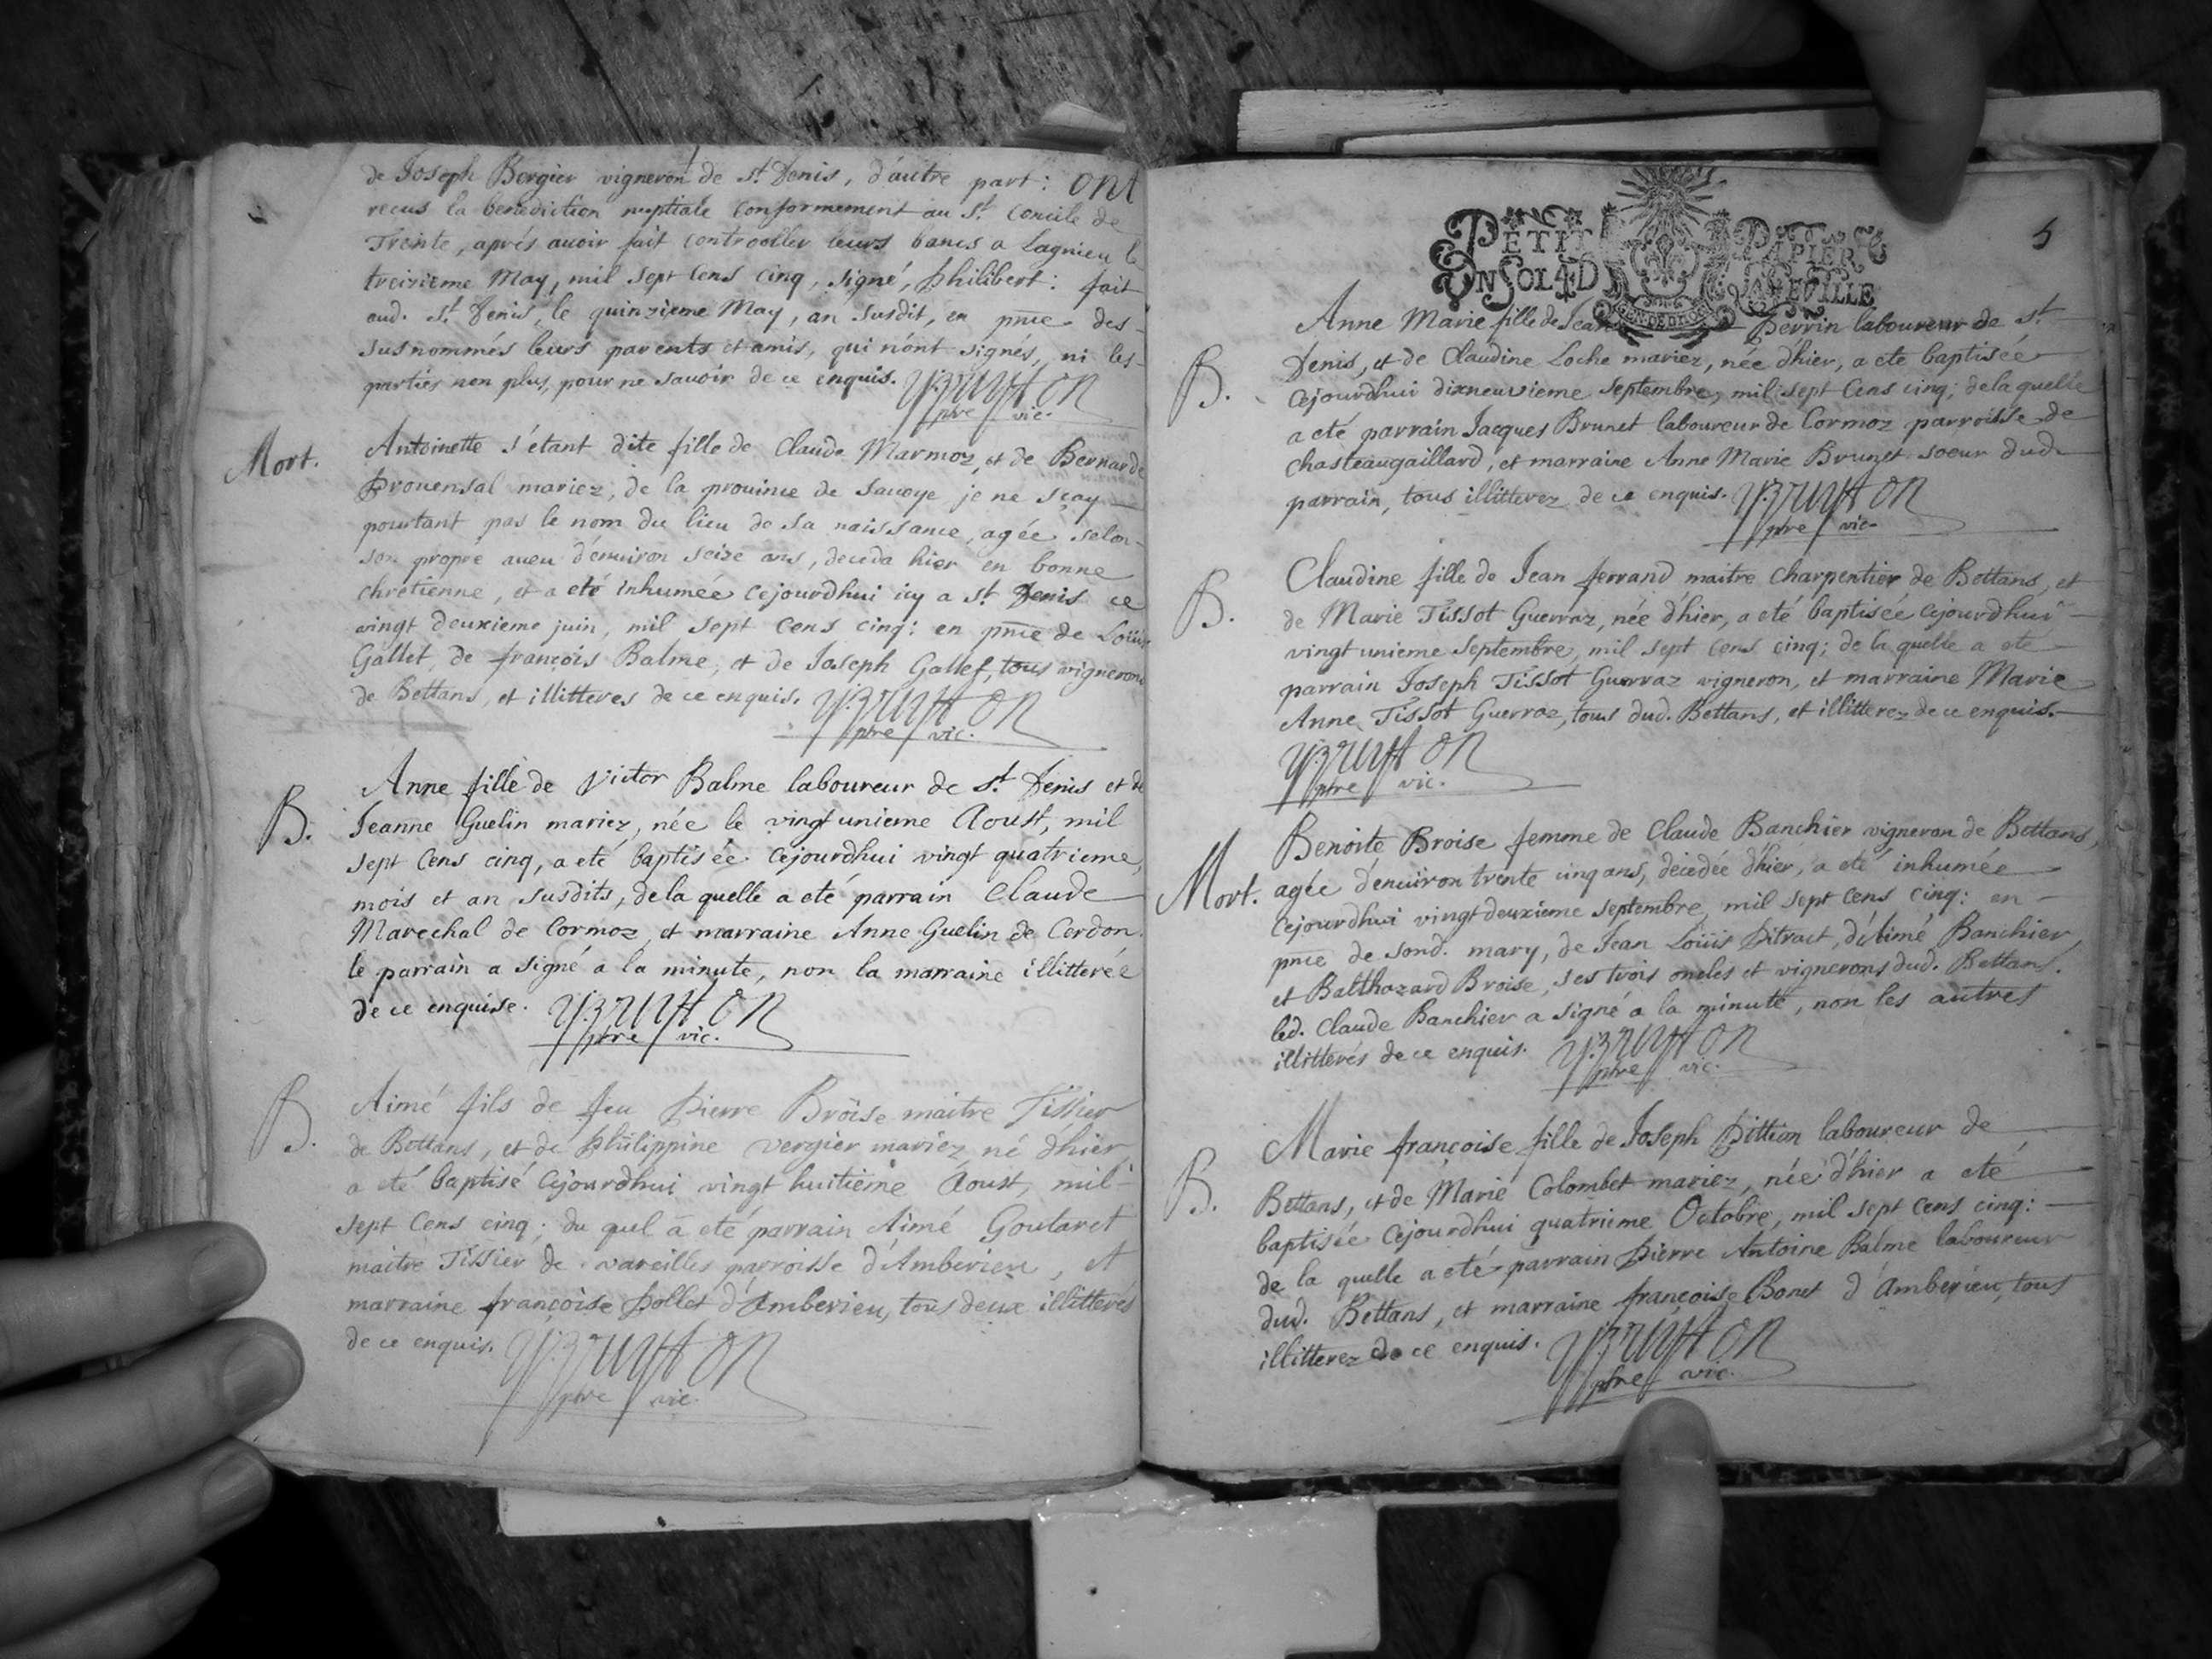 de Joseph Bergier vigneron de St. Denis, d'autre part: ont
recus la benediction nuptiale conformement au St. Concile de
Trente, aprés avoir fait controoller leurs bancs a Lagnieu le
treizieme May, mil sept cens cinq, signé, Philibert: fait
aud. St. Denis, le quinzieme May, an susdit, en pnce des
susnommés leurs parents et amis, qui n'ont signés, ni les
parties non plus, pour ne savoir de ce enquis.
ptre vic.
Mort.
Antoinette s'etant dite fille de Claude Marmoz, et de Bernarde
Provensal mariez, de la province de Savoye je ne sçay
pourtant pas le nom du lieu de sa naissance, agée selon
son propre aveu d'environ seize ans, deceda hier en bonne
chretienne, et a eté inhumée cejourdhui icy a St. Denis ce
vingt deuxieme juin, mil sept cens cinq: en pnce de Loüis
Gallet, de françois Balme, et de Joseph Gallet, tous vignerons
de Bettans, et illitteres de ce enquis.
ptre vic.
B.
Anne fille de Victor Balme laboureur de St. Denis et de
Jeanne Guelin mariez, née le vingt unieme Aoust, mil
sept cens cinq, a eté baptisée cejourdhui vingt quatrieme,
mois et an susdits, de la quelle a eté parrain Claude
Marechal de Cormoz, et marraine Anne Guelin de Cerdon.
le parrain a signé a la minute, non la marraine illitterée
de ce enquise.
ptre vic.
B.
Aimé fils de feu Pierre Broise maitre Tissier
de Bettans, et de Philippine Vergier mariez, né d'hier,
a eté baptisé cejourdhui vingt huitieme Aoust, mil
sept cens cinq; du quel a eté parrain Aimé Goutaret
maitre Tissier de vareilles parroisse d'Amberieu, et
marraine françoise Pollet d'Amberieu, tous deux illitterés
de ce enquis.
ptre vic.
5
PETIT PAPIER
UN SOL 4 D LA FEUILLE
B.
Anne Marie fille de Jean Perrin laboureur de St.
Denis, et de Claudine Loche mariez, née d'hier, a eté baptisée
cejourdhui dixneuvieme septembre, mil sept cens cinq; de la quelle
a eté parrain Jacques Brunet laboureur de Cormoz parroisse de
chasteaugaillard, et marraine Anne Marie Brunet soeur dud.
parrain, tous illitterez de ce enquis.
ptre vic.
B.
Claudine fille de Jean ferrand maitre charpentier de Bettans, et
de Marie Tissot Guerraz, née d'hier, a eté baptisée cejourdhui
vingt unieme septembre, mil sept cens cinq; de la quelle a eté
parrain Joseph Tissot Guerraz vigneron, et marraine Marie
Anne Tissot Guerraz, tous dud. Bettans, et illitterez de ce enquis.
ptre vic.
Mort.
Benoite Broise femme de Claude Banchier vigneron de Bettans,
agée d'environ trente cinq ans, décédée d'hier, a eté inhumée
cejourdhui vingt deuxieme septembre, mil sept cens cinq: en
pnce de sond. mary, de Jean Loüis Pitract, d'Aimé Banchier,
et Balthazard Broise, ses trois oncles et vignerons dud. Bettans.
led. Claude Banchier a signé a la minute, non les autres
illitterés de ce enquis.
ptre vic.
B.
Marie françoise fille de Joseph Pittion laboureur de
Bettans, et de Marie Colombet mariez, née d'hier a eté
baptisée cejourdhui quatrieme Octobre, mil sept cens cinq:
de la quelle a eté parrain Pierre Antoine Balme laboureur
dud. Bettans, et marraine françoise Bonet d'Amberieu, tous
illitterez de ce enquis.
ptre vic.